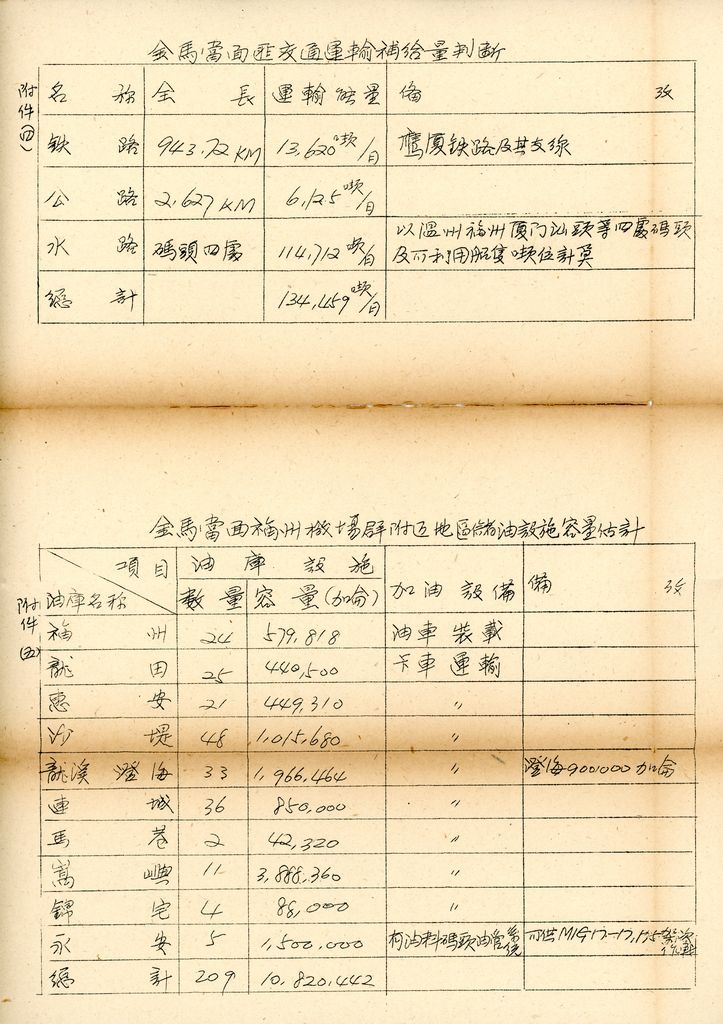 金馬當面匪交通運輸補給量判斷
附件(四)
名稱 全長 運輸能量 備攷
铁路 943.72KM 13,620噸/日 鷹厦铁路及其支線
公路 2,627KM 6,125噸/日
水路 碼頭四處 114,712噸/日 以溫州福州厦门汕頭等四處碼頭
及可利用船隻噸位計算
總計 134,459噸/日
金馬當面福州機場群附近地區儲油設施容量估計
附件(五)
項目 油庫設施 加油設備 備攷
油庫名称 數量 容量(加侖)
福州 24 579,818 油車裝載
龍田 25 440,500 卡車運輸
惠安 21 449,310 〃
沙堤 48 1,015,680 〃
龍溪澄海 33 1,966,464 〃 澄海900,000加侖
連城 36 850,000 〃
馬巷 2 42,320 〃
嵩嶼 11 3,888,360 〃
錦宅 4 88,000 〃
永安 5 1,500,000 柯油料碼頭油管系統 可供MIG17-17,175架次
總計 209 10,820,442